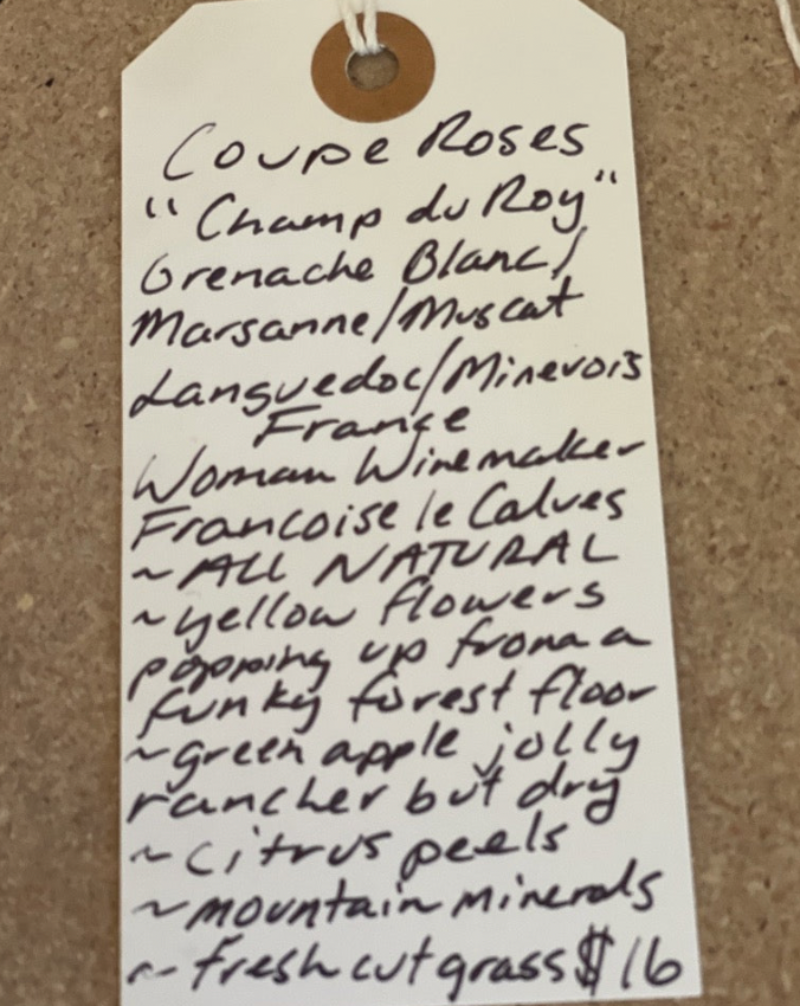 Coupe Roses
"Champ du Roy"
Grenache Blanc/
Marsanne/Muscat
Languedoc/Minevois
France
Woman Winemaker
Francoise le Calves
~ ALL NATURAL
~ yellow flowers
popping up from a
funky forest floor
~ green apple jolly
rancher but dry
~ citrus peels
~ mountain minerals
~ fresh cut grass $16